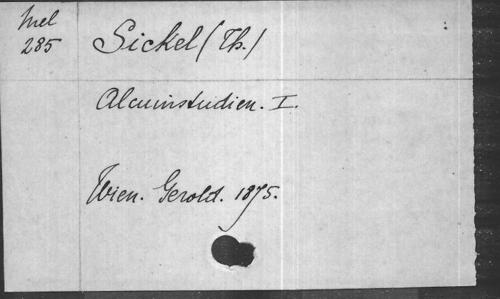 Mel
285
Sickel (Th.)
Alcuinstudien. I.
Wien. Gerold. 1875.